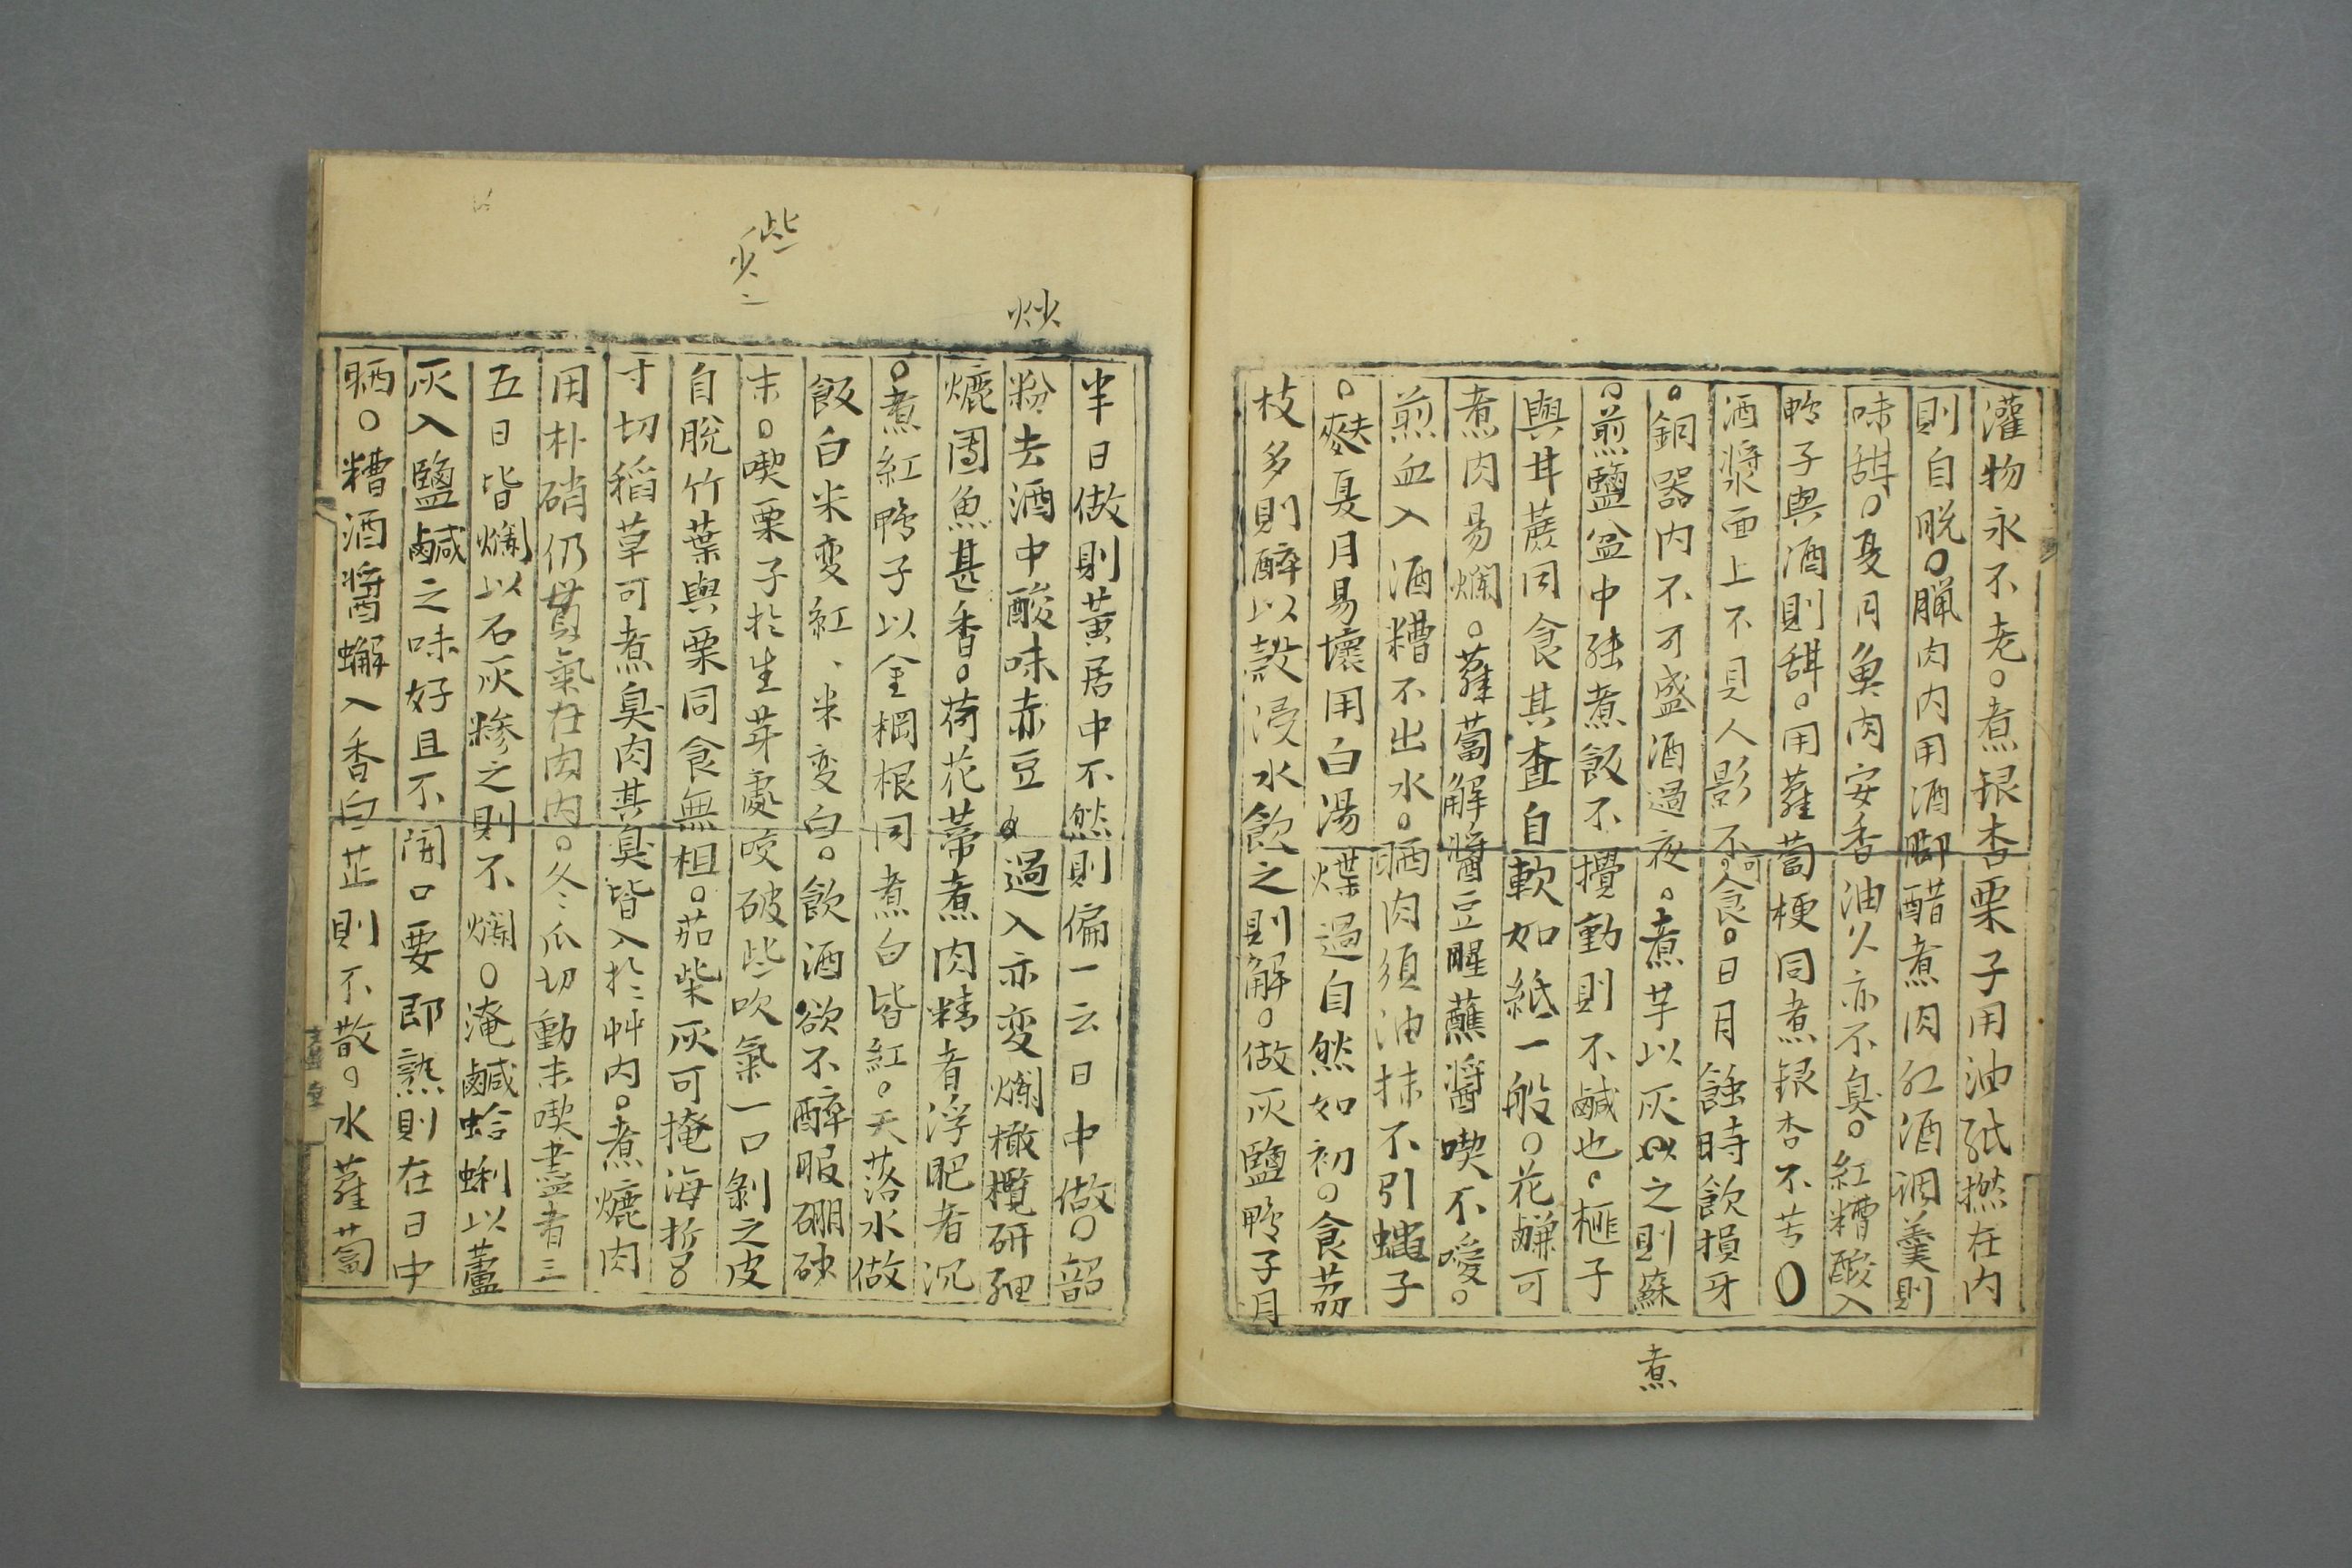 灌物永不老○煮銀杏栗子用油紙撚在内
則自脱○腊肉内用酒脚醋煮肉紅酒調羹則
味甜○夏月魚肉安香油久亦不臭○紅糟酸入
鴨子與酒則甜○用蘿蔔梗同煮銀杏不苦○
酒漿面上不見人影不可食○日月蝕時飲損牙
○銅器内不可盛酒過夜○煮芋以灰煮之則蘇
○煎鹽盆中能煮飯不攪動則不鹹也○榧子
與甘蔗同食其查自軟如紙一般○花鹻可
煮肉易爛○蘿蔔解醬豆腥蘸醬喫不噯○
煎血入酒糟不出水○晒肉須油抹不引蠅子
○麩夏月易壞用白湯煠過自然如初○食荔
枝多則醉以殻浸水飲之則解○做灰鹽鴨子月
煮
半日做則黄居中不然則偏一云日中做○韶
粉去酒中酸味赤豆炒過入亦変爤橄欖研細
爊團魚甚香○荷花蒂煮肉精者浮肥者沉
○煮紅鴨子以金棡根同煮白皆紅○天落水做
飯白米変紅、米変白○飲酒欲不醉服硼砂
末○喫栗子於生芽處咬破些吹氣一口剝之皮
自脱竹葉與栗同食無柤○茄柴灰可掩海蜇○
寸切稻草可煮臭肉其臭皆入於艸内○煮爊肉
用朴硝仍貫氣在肉内○冬瓜切動未喫盡者三
五日皆爛以石灰糝之則不爛○淹鹹蛤蜊以蘆
灰入鹽鹹之味好且不開口要即熟則在日中
晒○糟酒醬蠏入香白芷則不散○水蘿蔔
炒
些
少二